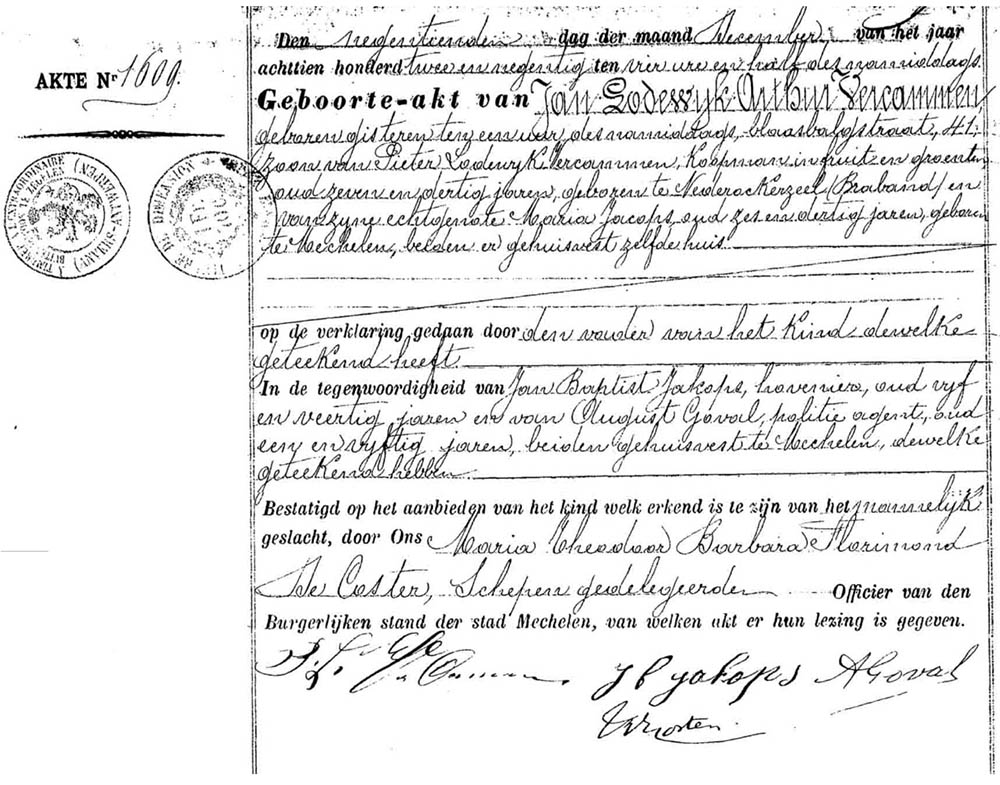 AKTE Nr 1609.
Den negentienden dag der maand December, van het jaar
achttien honderd twee en negentig ten vier ure en half des namiddags.
Geboorte-akt van Jan Lodewyk Arthur Vercammen
geboren gisteren ten een uur des namiddags, blaasbalgstraat, 41,
zoon van Pieter Lodewyk Vercammen, Koopman in fruit en groenten
oud zeven en dertig jaren, geboren te Nederockerzeel (Braband) en
van zyne echtgenote Maria Jacops, oud zes en dertig jaren, geboren
te Mechelen, beiden er gehuisvest zelfde huis.
op de verklaring gedaan door den vader van het Kind dewelke
geteekend heeft.
In de tegenwoordigheid van Jan Baptist Jakops, hovenier, oud vyf
en veertig jaren en van August Goval, politie agent, oud
een en vyftig jaren, beiden gehuisvest te Mechelen, dewelke
geteekend hebben.
Bestatigd op het aanbieden van het kind welk erkend is te zijn van het mannelijk
geslacht, door Ons Maria Theodoor Barbara Florimond
De Coster, Schepen gedelegeerden Officier van den
Burgerlijken stand der stad Mechelen, van welken akt er hun lezing is gegeven.
J B Jakops A Goval